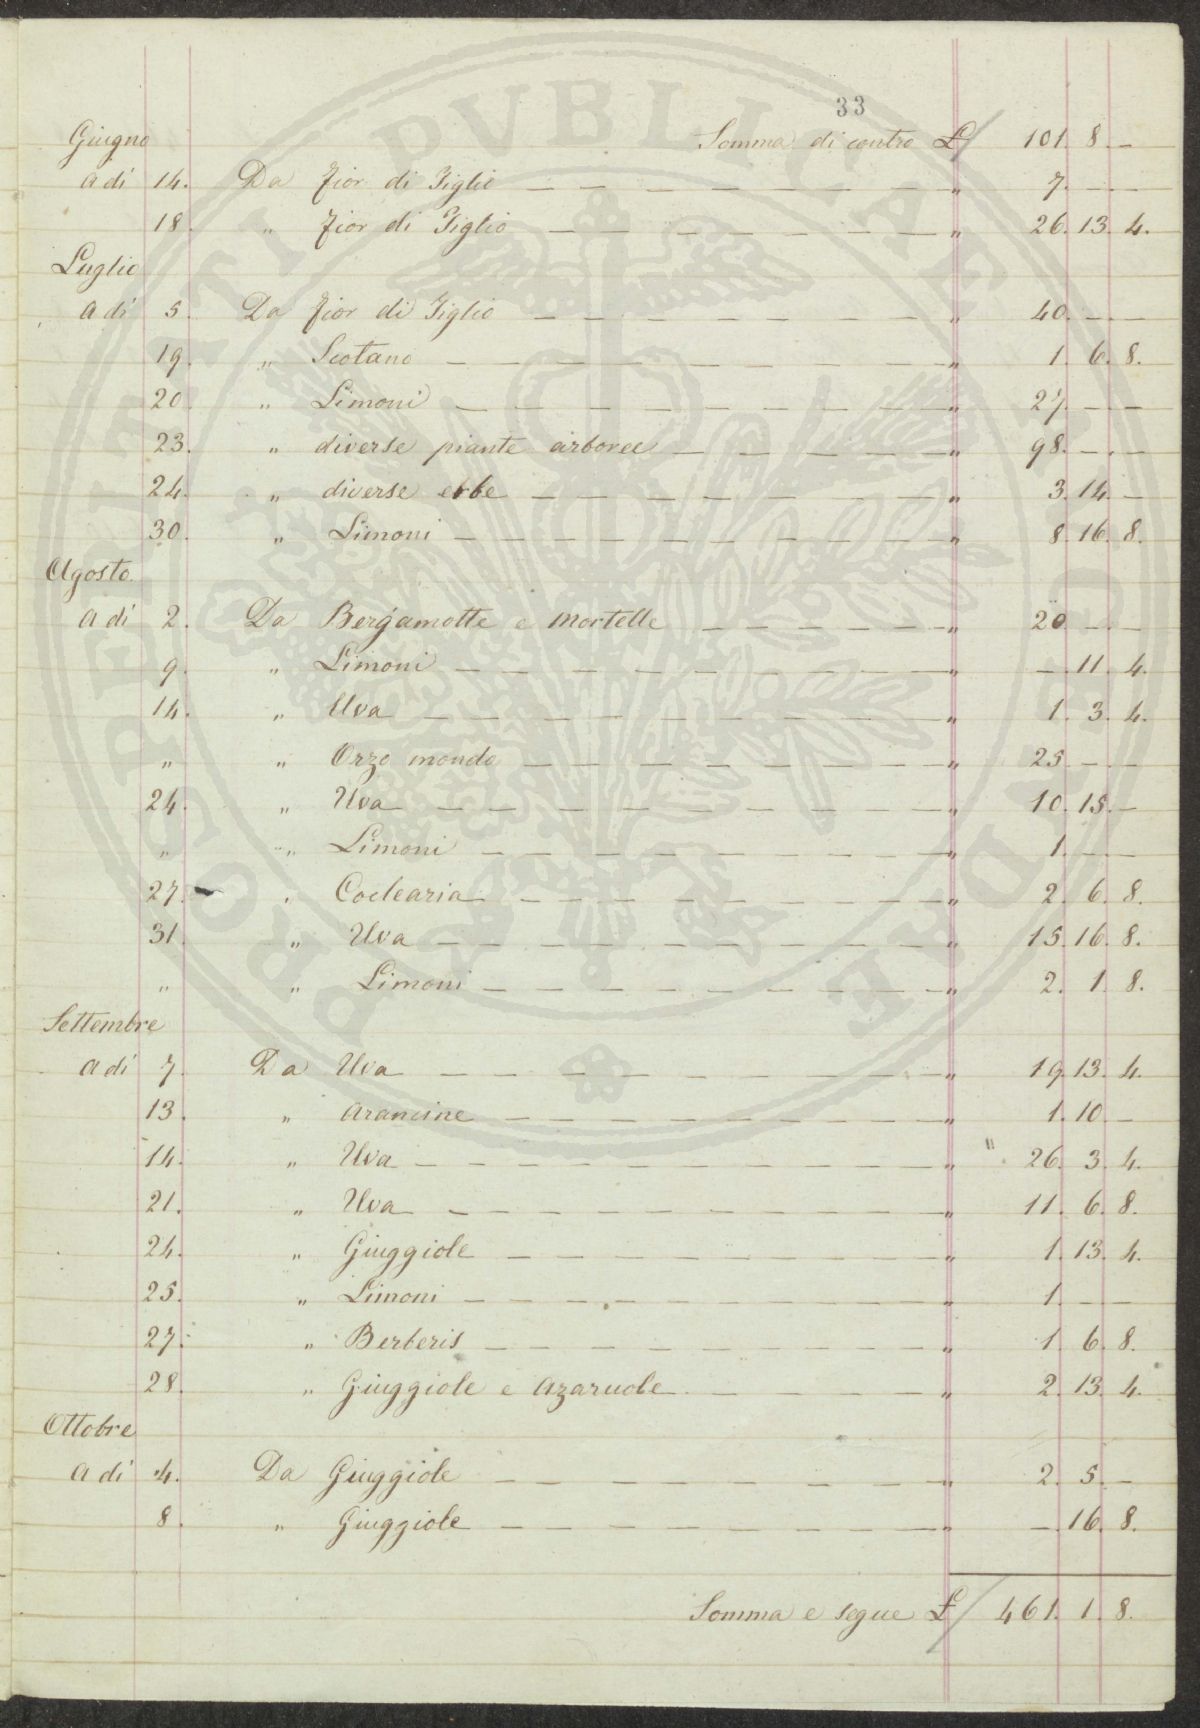 33
Giugno Somma di contro £ 101. 8. —
a dì 14. Da Fior di Giglio — — — — — — — „ 7. — —
18. „ Fior di Giglio — — — — — — — „ 26. 13. 4.
Luglio
a dì 5. Da Fior di Giglio — — — — — — — „ 40. — —
19. „ Scotano — — — — — — — — „ 1. 6. 8.
20. „ Limoni — — — — — — — — „ 27. — —
23. „ diverse piante arboree — — — — — „ 98. — —
24. „ diverse erbe — — — — — — — „ 3. 14. —
30. „ Limoni — — — — — — — — „ 8. 16. 8.
Agosto
a dì 2. Da Bergamotte e Mortelle — — — — — „ 20. — —
9. „ Limoni — — — — — — — — „ — 11. 4.
14. „ Uva — — — — — — — — „ 1. 3. 4.
„ „ Orzo mondo — — — — — — — „ 25. — —
24. „ Uva — — — — — — — — „ 10. 15. —
„ „ Limoni — — — — — — — — „ 1. — —
27. „ Coclearia — — — — — — — „ 2. 6. 8.
31. „ Uva — — — — — — — — „ 15. 16. 8.
„ „ Limoni — — — — — — — — „ 2. 1. 8.
Settembre
a dì 7. Da Uva — — — — — — — — „ 19. 13. 4.
13. „ Arancine — — — — — — — „ 1. 10. —
14. „ Uva — — — — — — — — „ 26. 3. 4.
21. „ Uva — — — — — — — — „ 11. 6. 8.
24. „ Giuggiole — — — — — — — „ 1. 13. 4.
25. „ Limoni — — — — — — — — „ 1. — —
27. „ Berberis — — — — — — — „ 1. 6. 8.
28. „ Giuggiole e Azaruole — — — — — „ 2. 13. 4.
Ottobre
a dì 4. Da Giuggiole — — — — — — — „ 2. 5. —
8. „ Giuggiole — — — — — — — „ — 16. 8.
Somma e segue £ 461. 1. 8.
PROSPERITATI PVBLICAE AVGENDAE